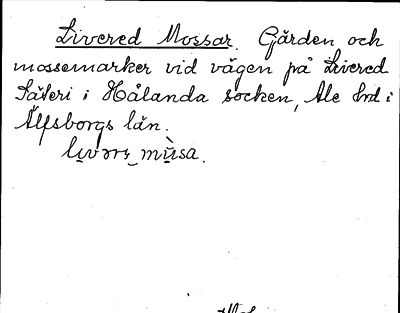 Livered Mossar. Gården och
mossemarker vid vägen på Livered
Säteri i Hålanda socken, Ale hrd i
Älfsborgs län.